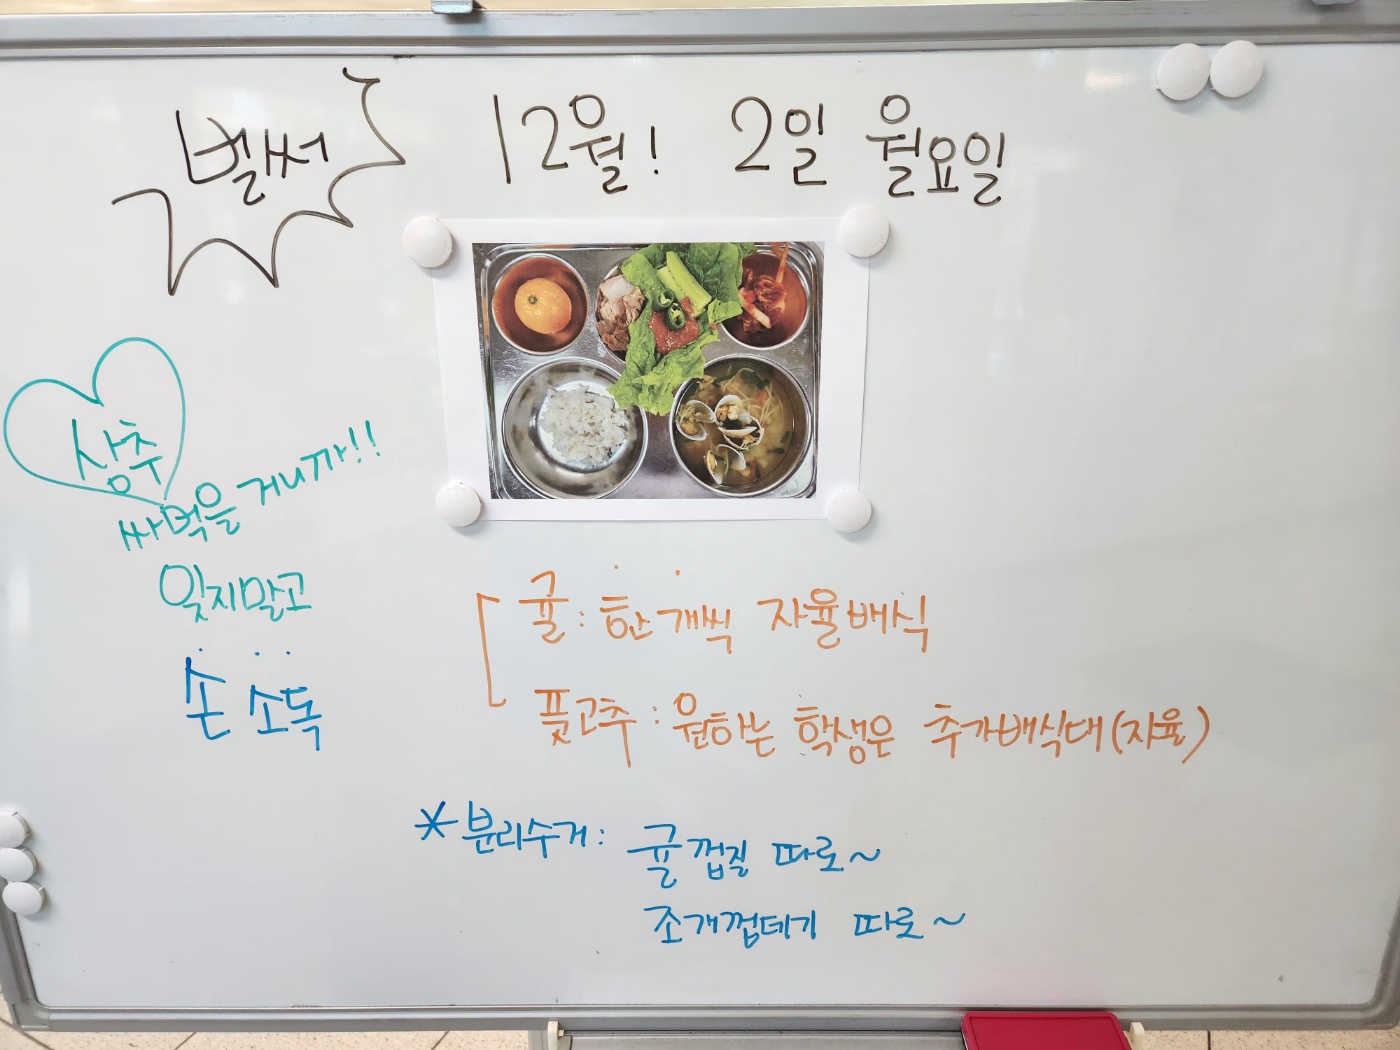 벌써 12월! 2일 월요일
상추
싸먹을 거니까!!
잊지말고
손 소독
귤: 한 개씩 자율배식
풋고추: 원하는 학생은 추가배식대(자율)
*분리수거: 귤껍질 따로~
조개껍데기 따로~